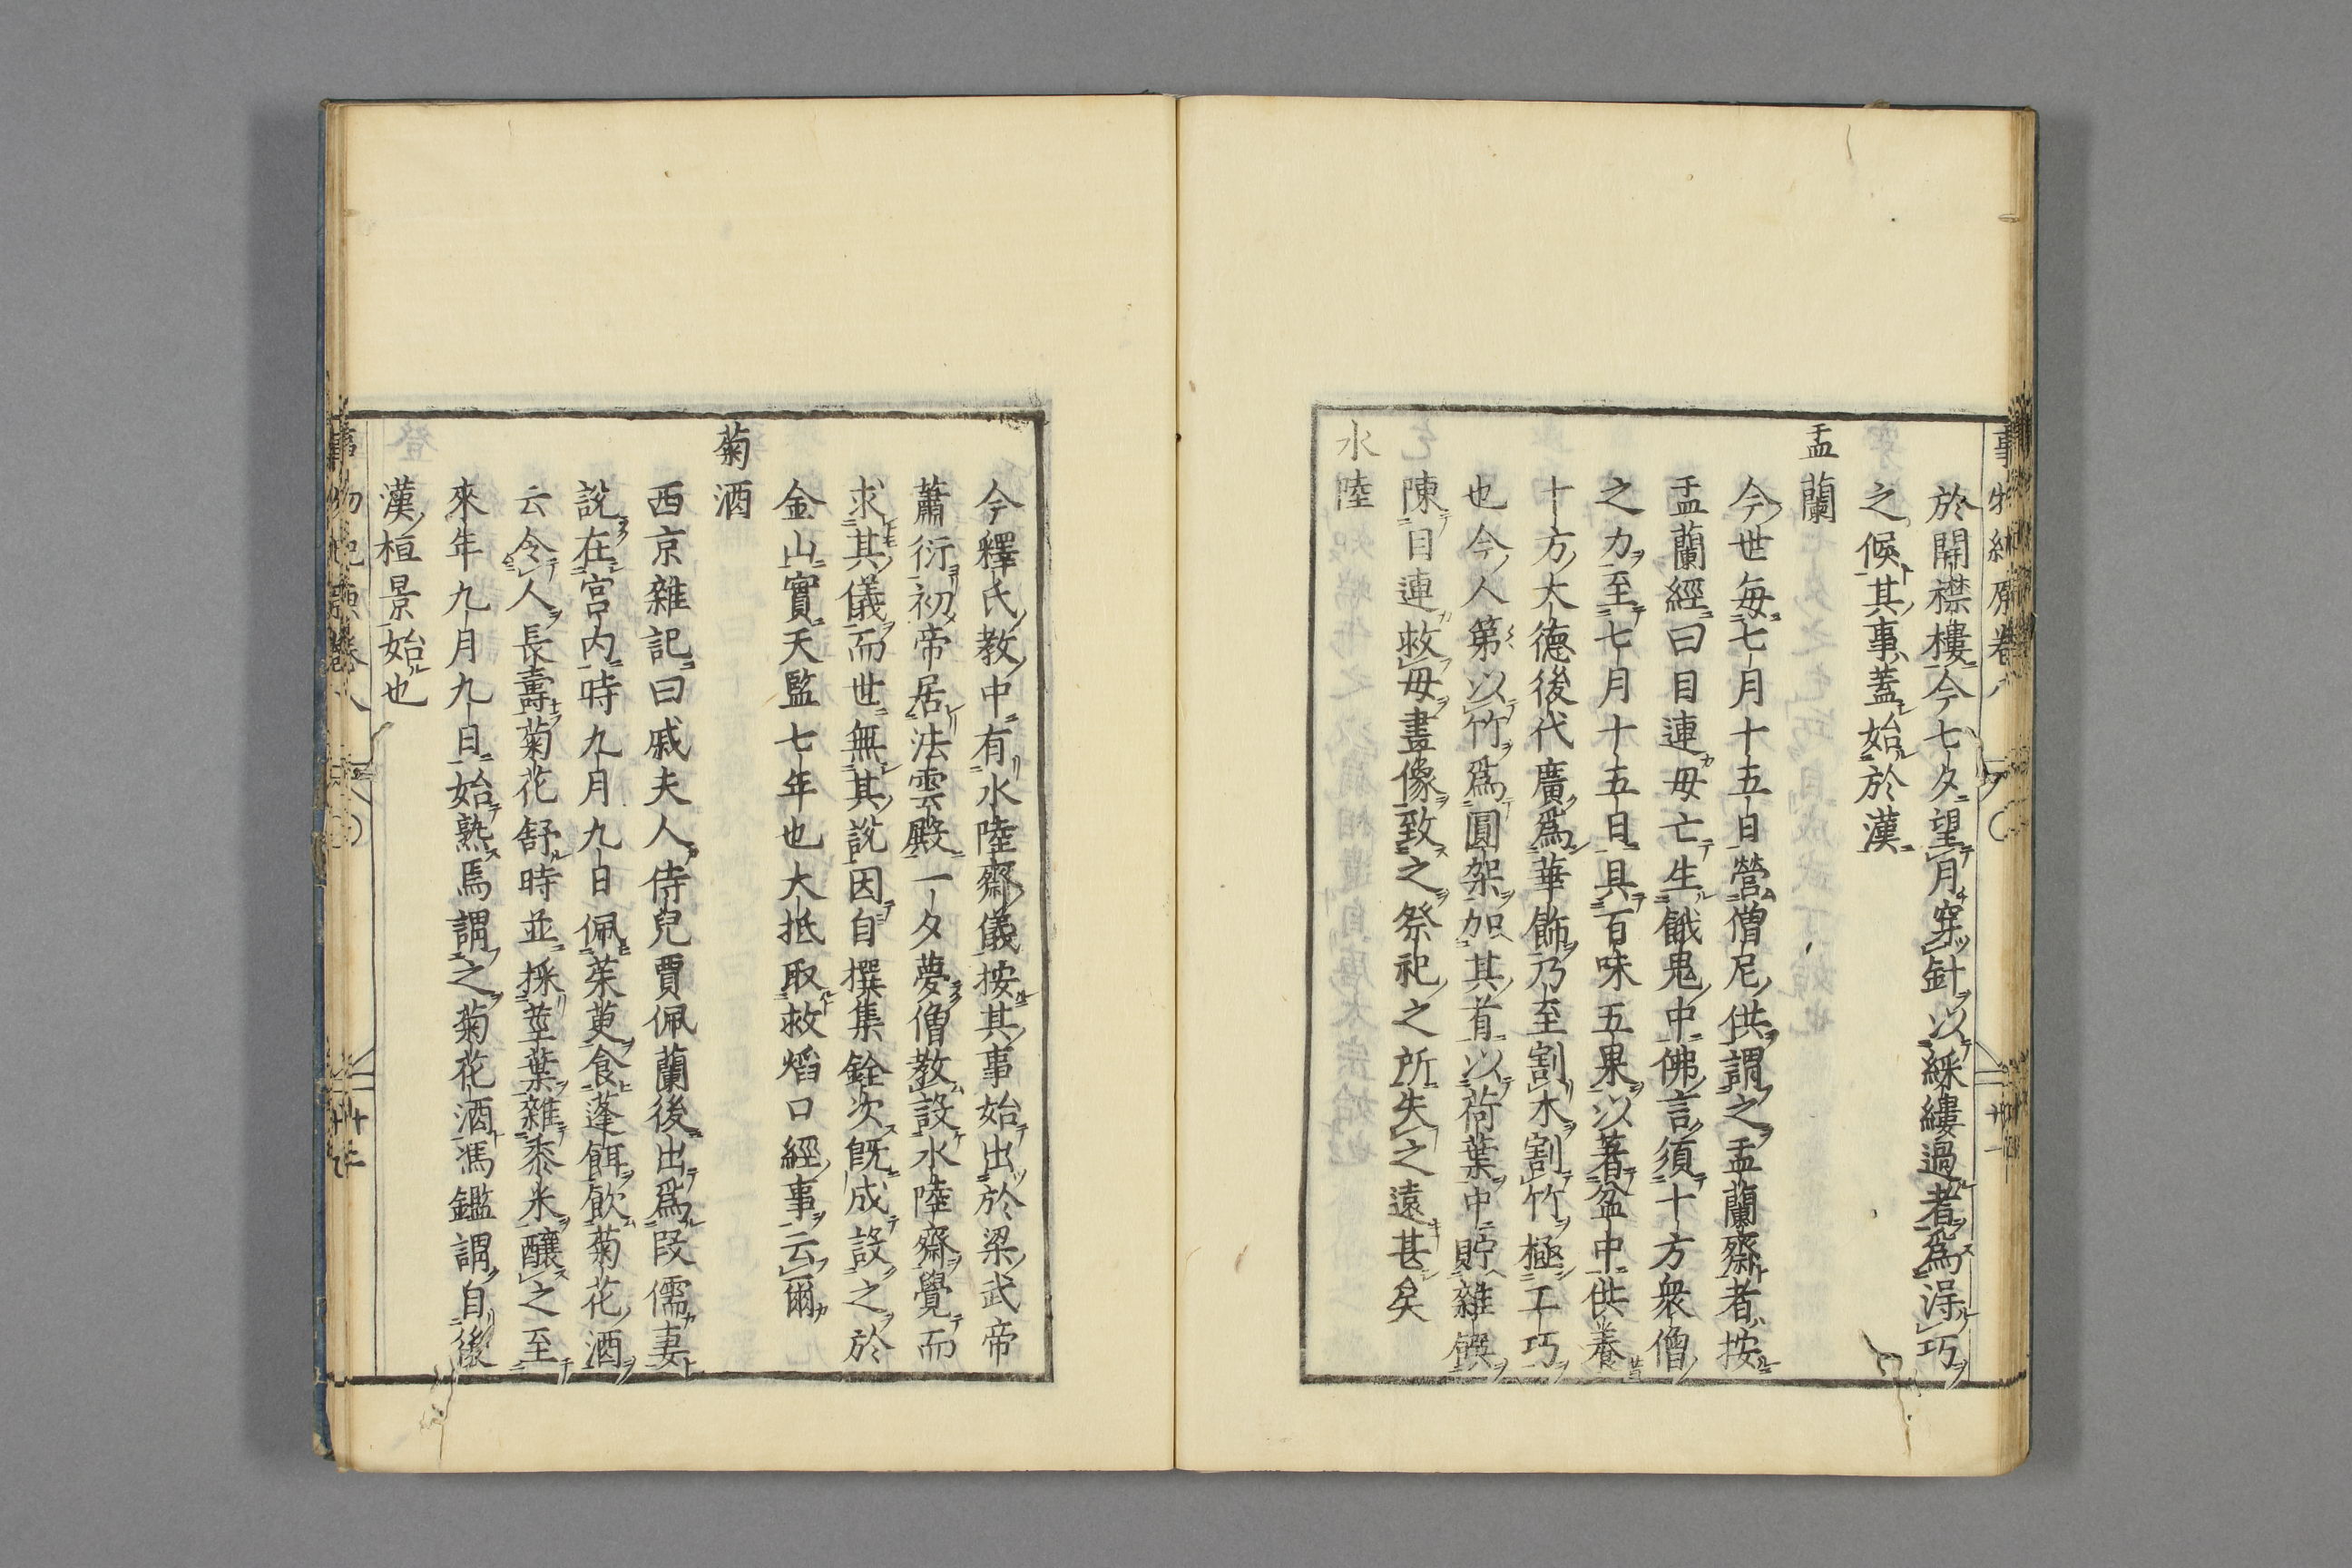 於開襟樓今七夕望月穿針以綵縷過者爲淂巧
之候其事蓋始於漢
盂蘭
今世毎七月十五日營僧尼供謂之盂蘭齋者按
盂蘭經曰目連母亡生餓鬼中佛言須十方衆僧
之力至七月十五日具百味五果以著盆中供養
十方大德後代廣爲華飾乃至割木割竹極工巧
也今人第以竹爲圓架加其首以荷葉中貯雜饌
陳目連救母畫像致之祭祀之所失之遠甚矣
水陸
今釋氏教中有水陸齋儀按其事始出於梁武帝
蕭衍初帝居法雲殿一夕夢僧教設水陸齋覺而
求其儀而世無其說因自撰集銓次既成設之於
金山實天監七年也大抵取救熖口經事云爾
菊酒
西京雜記曰戚夫人侍兒賈佩蘭後出爲段儒妻
說在宮内時九月九日佩茱萸食蓬餌飲菊花酒
云令人長壽菊花舒時並採莖葉雜黍米釀之至
來年九月九日始熟焉謂之菊花酒馮鑑謂自後
漢桓景始也